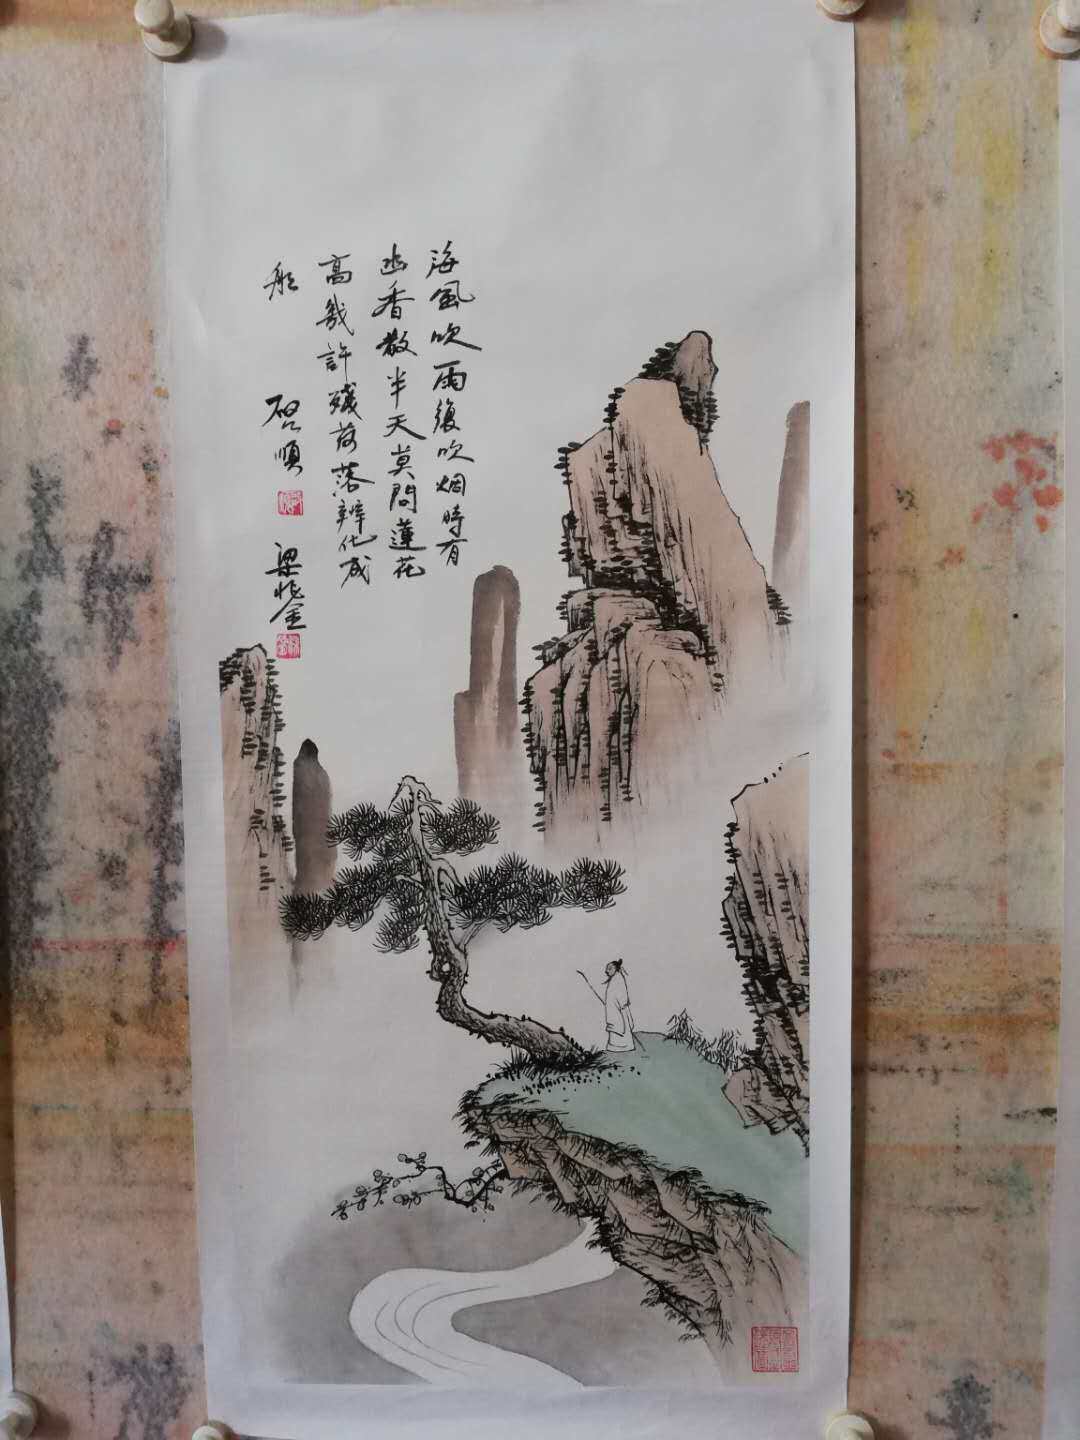 海風吹雨復吹烟時有
幽香散半天莫問蓮花
高幾許殘荷落辦化成
船
啓順
梁兆金